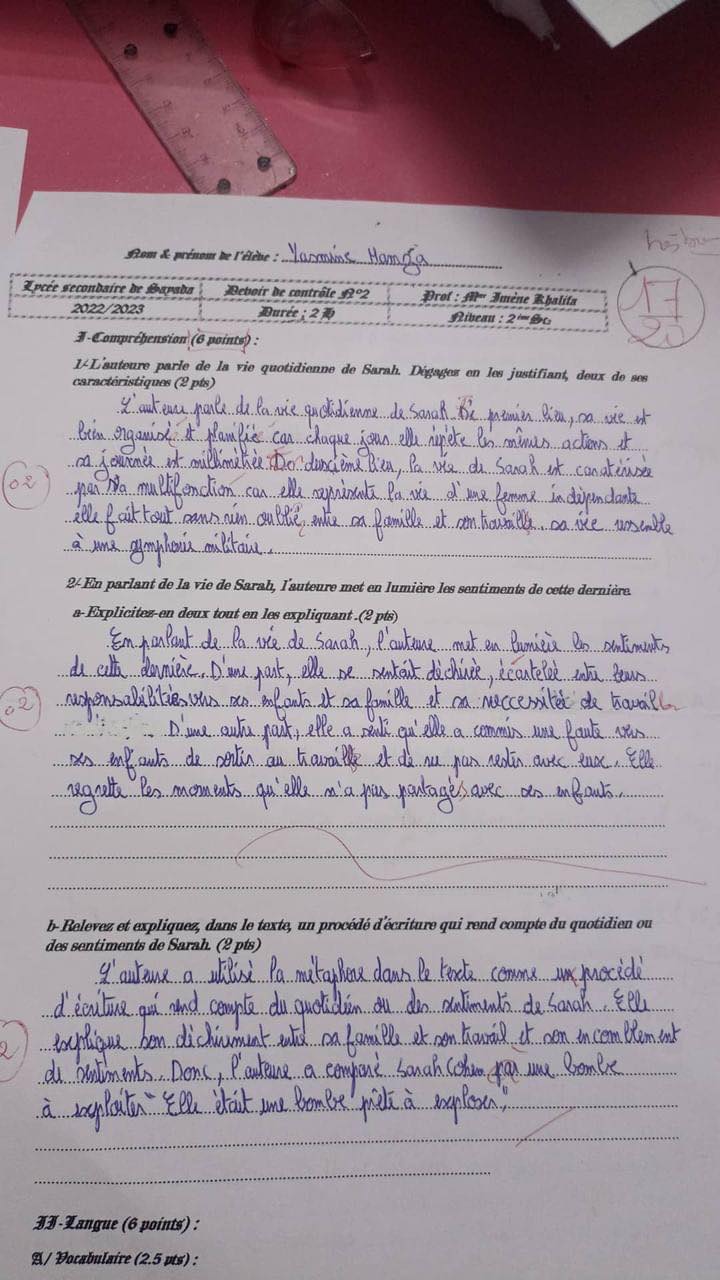 Nom & prénom de l'élève : Yasmine Hamza
Lycée secondaire de Sayada
Devoir de contrôle N°2
Prof : Mme Imène Khalifa
2022/2023
Durée : 2 H
Niveau : 2ème Sc.
17
20
I-Compréhension (6 points) :
1/-L'auteure parle de la vie quotidienne de Sarah. Dégagez en les justifiant, deux de ses
caractéristiques (2 pts)
L'auteure parle de la vie quotidienne de Sarah. premier lieu, sa vie est
bien organisé et planifiée car chaque jours elle répète les mêmes actions et
sa journée est millimétrée. deuxième lieu, la vie de Sarah est caratérisée
02
par sa multifonction car elle représente la vie d'une femme indépendante
elle fait tout sans rien oublié, entre sa famille et son travaille, sa vie ressemble
à une symphonie militaire.
2/-En parlant de la vie de Sarah, l'auteure met en lumière les sentiments de cette dernière.
a-Explicitez-en deux tout en les expliquant .(2 pts)
En parlant de la vie de Sarah, l'auteure met en lumière les sentiments
de cette dernière. D'une part, elle se sentait déchirée, écartelée entre leurs
02
responsabilitées vers ses enfants et sa famille et sa neccessitée de travail
D'une autre part, elle a senti qu'elle a commis une faute vers
ses enfants de sortir au travaille et de ne pas rester avec eux. Elle
regrette les moments qu'elle n'a pas partagés avec ses enfants.
b-Relevez et expliquez, dans le texte, un procédé d'écriture qui rend compte du quotidien ou
des sentiments de Sarah. (2 pts)
L'auteure a utilisé la métaphore dans le texte comme un procédé
d'écriture qui rend compte du quotidien ou des sentiments de Sarah. Elle
explique son déchirement entre sa famille et son travail et son encomblement
2
de sentiments. Donc, l'auteure a comparé Sarah Cohen par une bombe
à exploiter "Elle était une bombe prête à exploser"
II-Langue (6 points) :
A/ Vocabulaire (2.5 pts) :